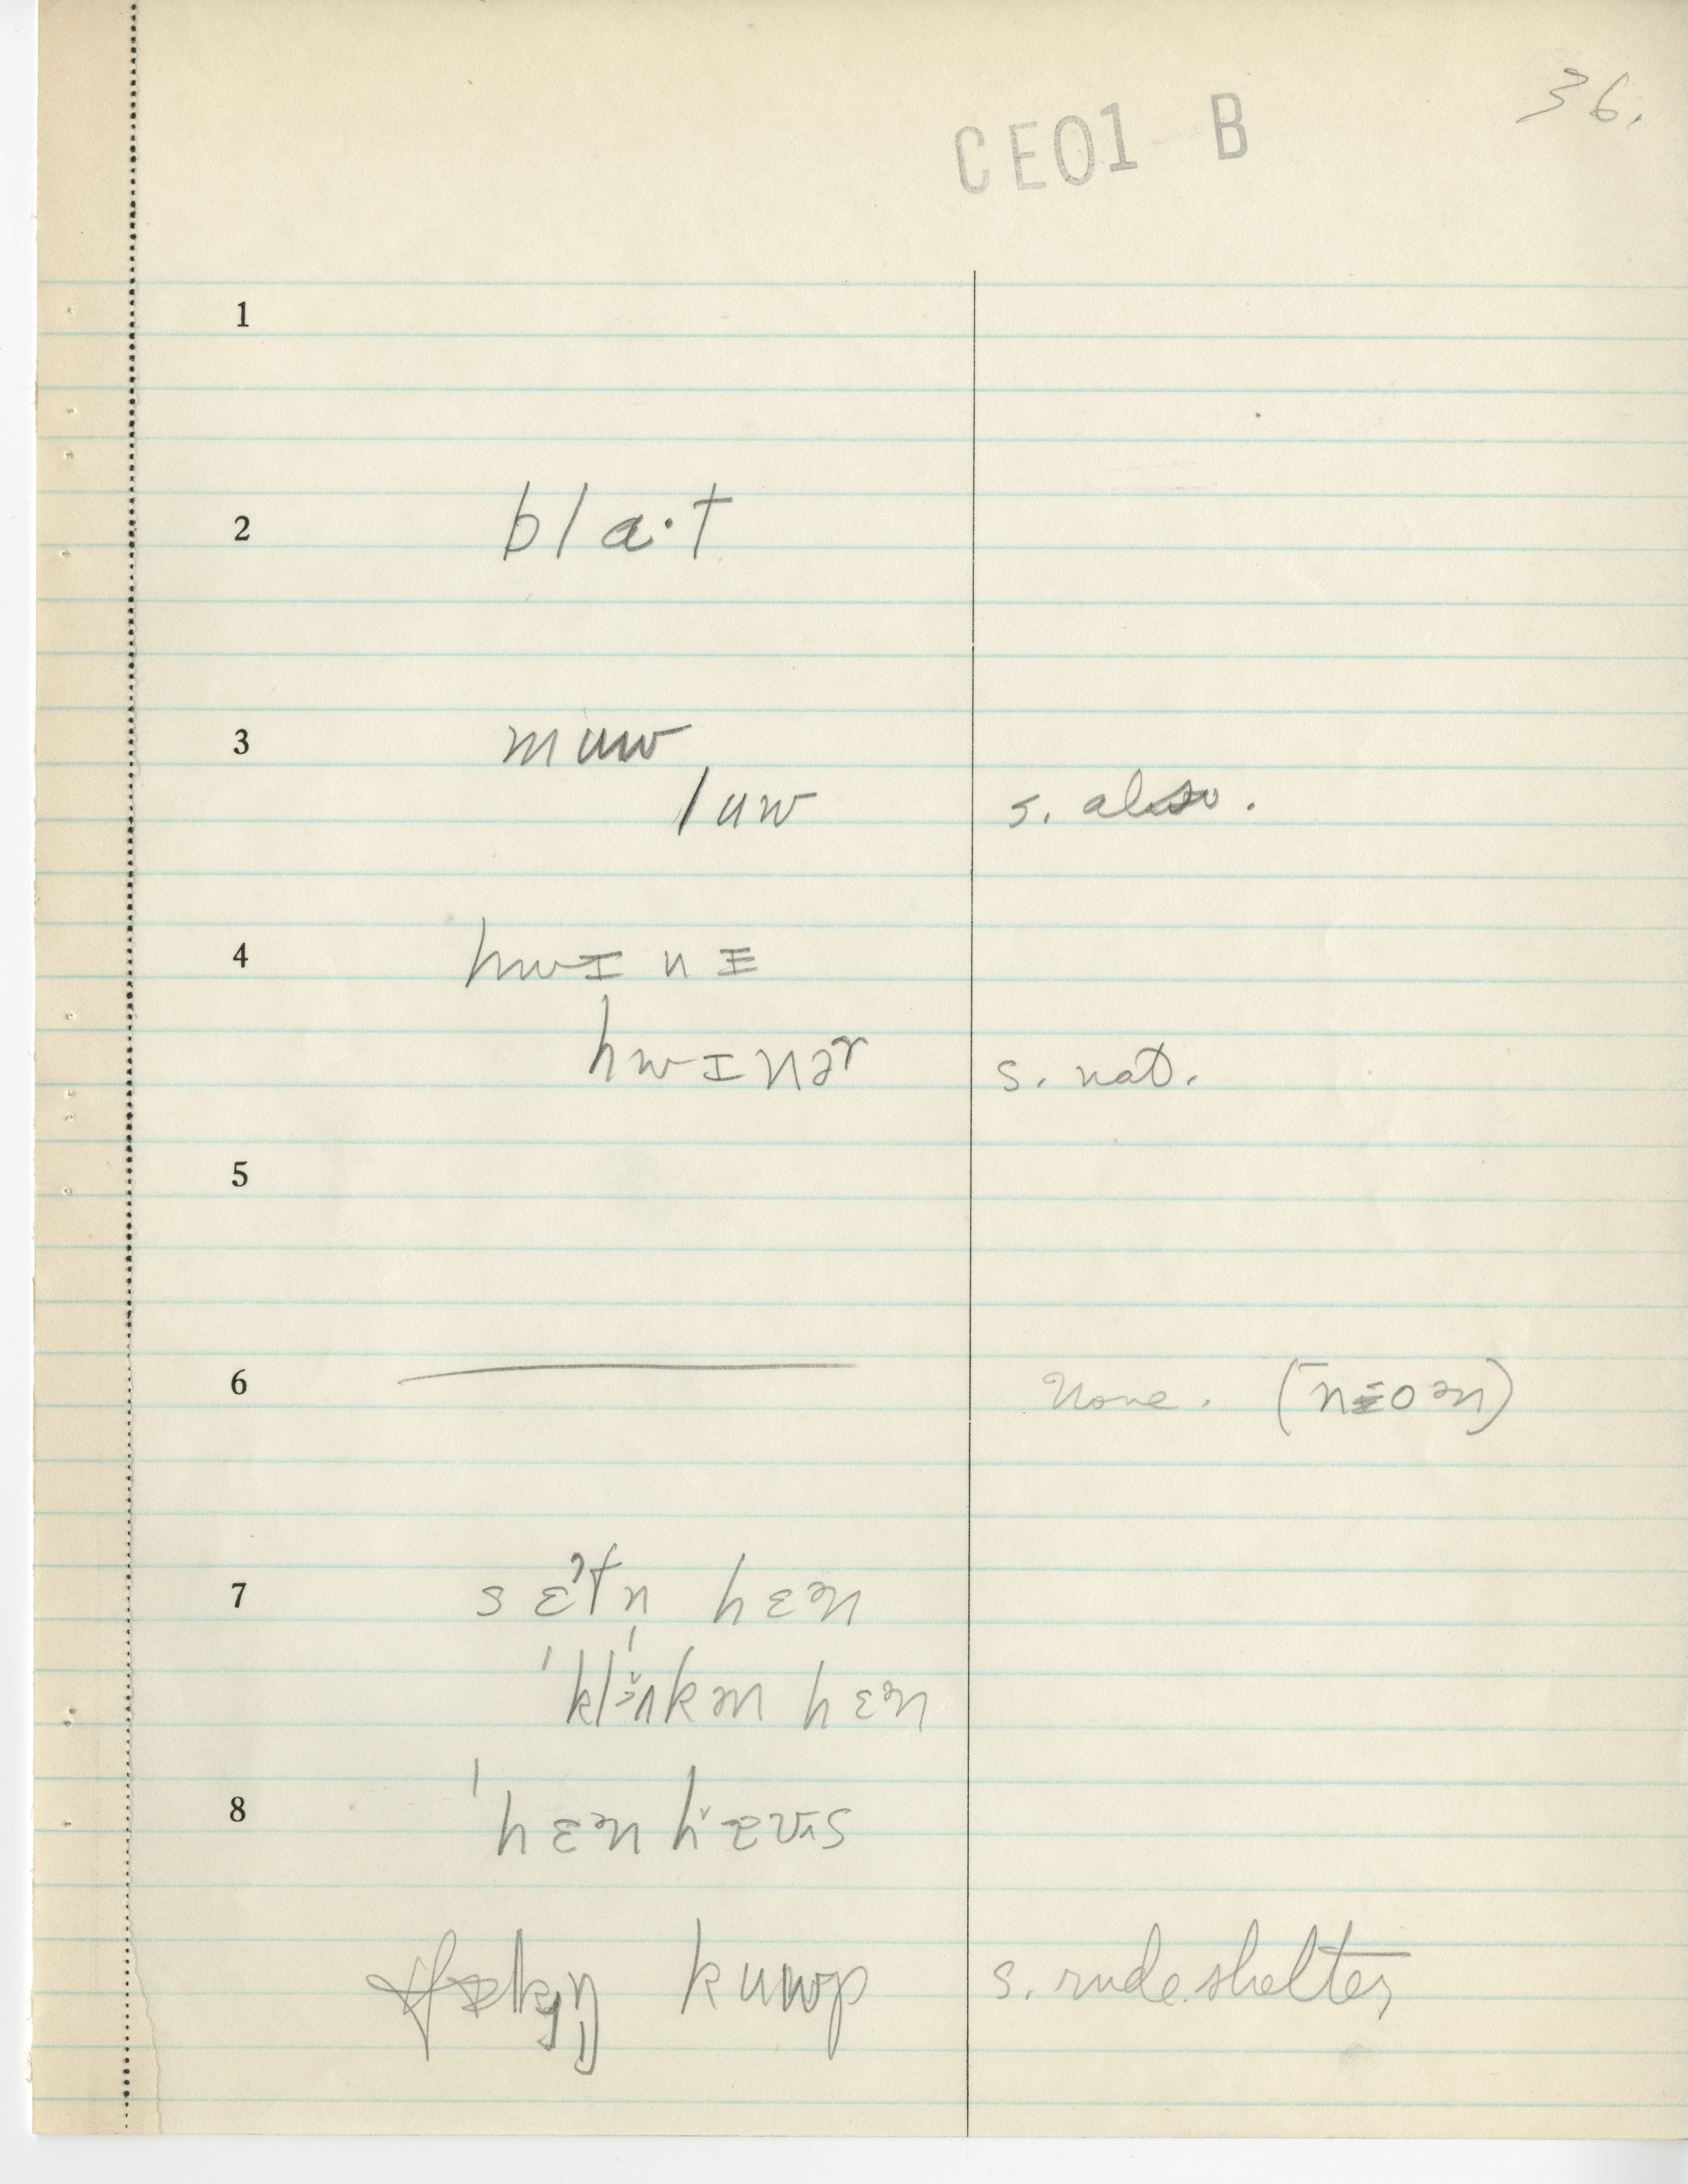 36.
CE01 B
1
2 bla·t
3 muw
luw s. also.
4 hwɪnɪ
hwɪnər s. nat.
5
6 None. (nɪoən)
7 sɛʔtn̩ hɛən
ˈklʌkən hɛən
8 ˈhɛənhævɪs
kuwp s. rude shelter